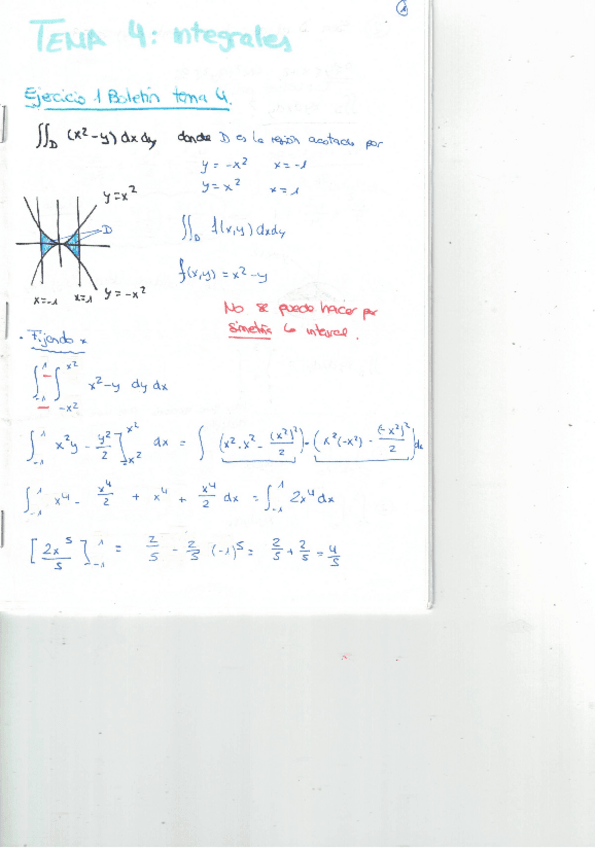 1
TEMA 4: integrales
Ejercicio 1 Boletín tema 4.
∬_D (x²-y) dx dy donde D es la región acotada por
y = -x² x = -1
y = x² x = 1
y = x²
D
∬_D f(x,y) dx dy
f(x,y) = x²-y
x=-1 x=1 y = -x²
No se puede hacer por
simetría la integral.
· Fijando x
∫_{-1}^{1} ∫_{-x²}^{x²} x²-y dy dx
∫_{-1}^{1} x²y - y²/2 ]_{-x²}^{x²} dx = ∫ (x²·x² - (x²)²/2) - (x²(-x²) - (-x²)²/2) dx
∫_{-1}^{1} x⁴ - x⁴/2 + x⁴ + x⁴/2 dx = ∫_{-1}^{1} 2x⁴ dx
[2x⁵/5]_{-1}^{1} = 2/5 - 2/5 (-1)⁵ = 2/5 + 2/5 = 4/5